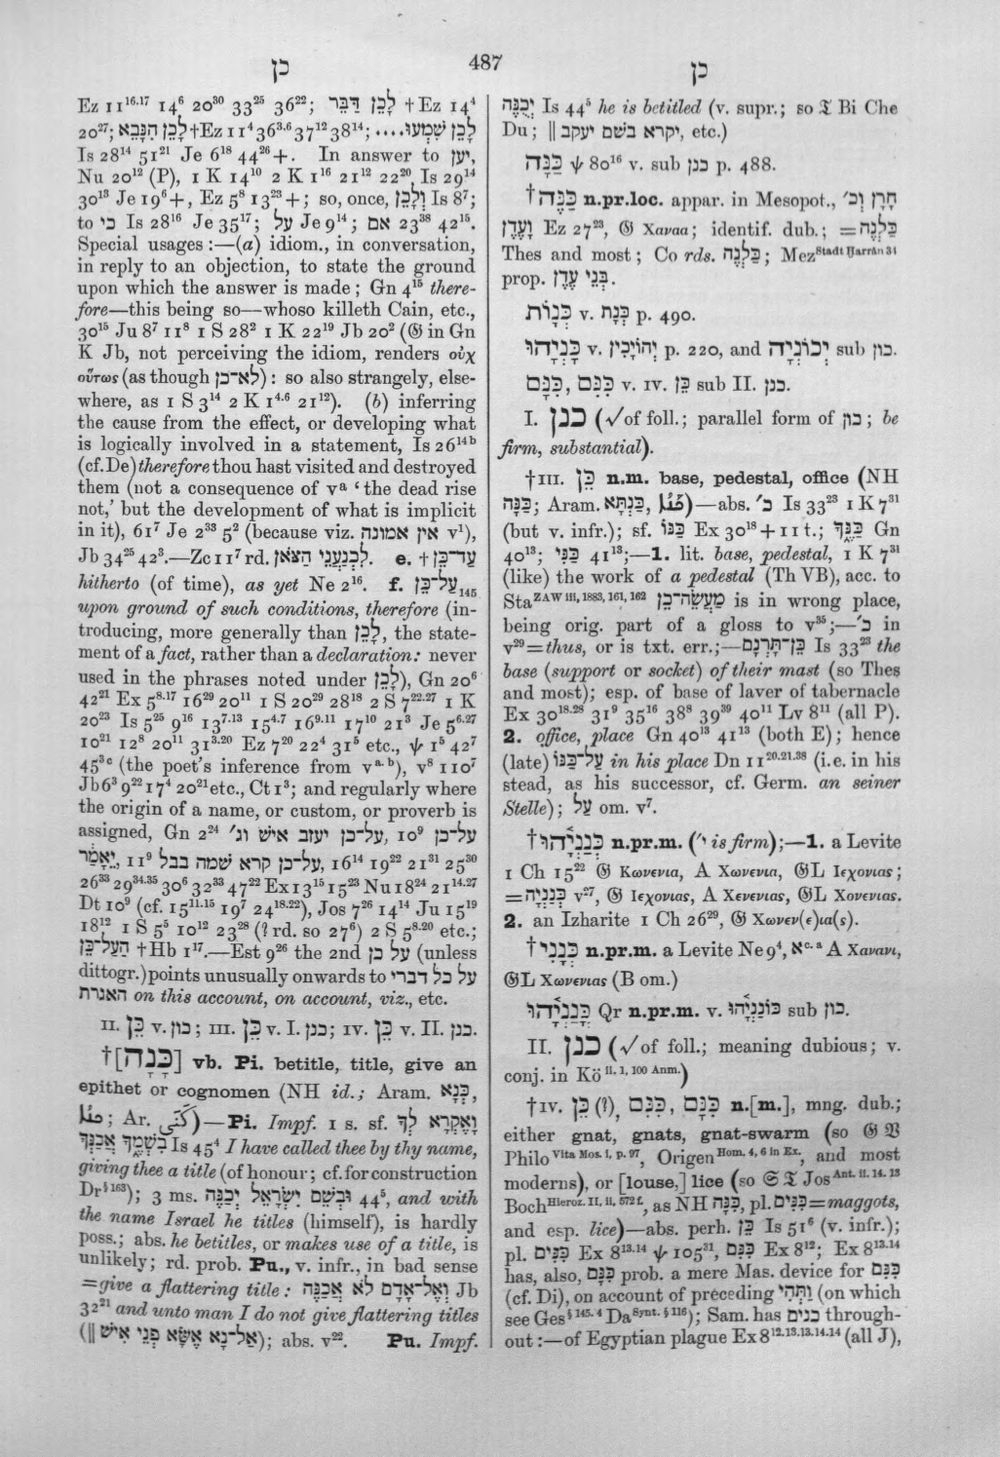 כן
487
כן
Ez 11¹⁶·¹⁷ 14⁶ 20³⁰ 33²⁵ 36²²; לָכֵן דַּבֵּר †Ez 14⁴
20²⁷; לָכֵן הִנָּבֵא †Ez 11⁴ 36³·⁶ 37¹² 38¹⁴; לָכֵן שִׁמְעוּ....
Is 28¹⁴ 51²¹ Je 6¹⁸ 44²⁶+. In answer to יַעַן,
Nu 20¹² (P), 1 K 14¹⁰ 2 K 1¹⁶ 21¹² 22²⁰ Is 29¹⁴
30¹³ Je 19⁶+, Ez 5⁸ 13²³+; so, once, וְלָכֵן Is 8⁷;
to כִּי Is 28¹⁶ Je 35¹⁷; עַל Je 9¹⁴; אִם 23³⁸ 42¹⁵.
Special usages:—(a) idiom., in conversation,
in reply to an objection, to state the ground
upon which the answer is made; Gn 4¹⁵ there-
fore—this being so—whoso killeth Cain, etc.,
30¹⁵ Ju 8⁷ 11⁸ 1 S 28² 1 K 22¹⁹ Jb 20² (𝔊 in Gn
K Jb, not perceiving the idiom, renders οὐχ
οὕτως (as though לֹא־כֵן): so also strangely, else-
where, as 1 S 3¹⁴ 2 K 1⁴·⁶ 21¹²). (b) inferring
the cause from the effect, or developing what
is logically involved in a statement, Is 26¹⁴ᵇ
(cf. De) therefore thou hast visited and destroyed
them (not a consequence of vᵃ ‘the dead rise
not,’ but the development of what is implicit
in it), 61⁷ Je 2³³ 5² (because viz. אין אמונה v¹),
Jb 34²⁵ 42³.—Zc 11⁷ rd. לִכְנַעֲנֵי הַצֹּאן. e. †עַד־כֵּן
hitherto (of time), as yet Ne 2¹⁶. f. עַל־כֵּן₁₄₅
upon ground of such conditions, therefore (in-
troducing, more generally than לָכֵן, the state-
ment of a fact, rather than a declaration: never
used in the phrases noted under לָכֵן), Gn 20⁶
42²¹ Ex 5⁸·¹⁷ 16²⁹ 20¹¹ 1 S 20²⁹ 28¹⁸ 2 S 7²²·²⁷ 1 K
20²³ Is 5²⁵ 9¹⁶ 13⁷·¹³ 15⁴·⁷ 16⁹·¹¹ 17¹⁰ 21³ Je 5⁶·²⁷
10²¹ 12⁸ 20¹¹ 31³·²⁰ Ez 7²⁰ 22⁴ 31⁵ etc., ψ 1⁵ 42⁷
45³ᶜ (the poet’s inference from vᵃ·ᵇ), v⁸ 110⁷
Jb 6³ 9²² 17⁴ 20²¹ etc., Ct 1³; and regularly where
the origin of a name, or custom, or proverb is
assigned, Gn 2²⁴ על־כן יעזב איש וג׳, 10⁹ על־כן
יֵאָמַר, 11⁹ על־כן קרא שמה בבל, 16¹⁴ 19²² 21³¹ 25³⁰
26³³ 29³⁴·³⁵ 30⁶ 32³³ 47²² Ex 13¹⁵ 15²³ Nu 18²⁴ 21¹⁴·²⁷
Dt 10⁹ (cf. 15¹¹·¹⁵ 19⁷ 24¹⁸·²²), Jos 7²⁶ 14¹⁴ Ju 15¹⁹
18¹² 1 S 5⁵ 10¹² 23²⁸ (? rd. so 27⁶) 2 S 5⁸·²⁰ etc.;
הַעַל־כֵּן †Hb 1¹⁷.—Est 9²⁶ the 2nd על כן (unless
dittogr.) points unusually onwards to על כל דברי
האגרת on this account, on account, viz., etc.
II. כֵּן v. כון; III. כֵּן v. I. כנן; IV. כֵּן v. II. כנן.
†[כָּנָה] vb. Pi. betitle, title, give an
epithet or cognomen (NH id.; Aram. כְּנָא,
; Ar. كَنَى)—Pi. Impf. 1 s. sf. וָאֶקְרָא לְךָ
בִּשְׁמֶךָ אֲכַנְּךָ Is 45⁴ I have called thee by thy name,
giving thee a title (of honour; cf. for construction
Dr§¹⁶³); 3 ms. וּבְשֵׁם יִשְׂרָאֵל יְכַנֶּה 44⁵, and with
the name Israel he titles (himself), is hardly
poss.; abs. he betitles, or makes use of a title, is
unlikely; rd. prob. Pu., v. infr., in bad sense
=give a flattering title: וְאֶל־אָדָם לֹא אֲכַנֶּה Jb
32²¹ and unto man I do not give flattering titles
(‖ אַל־נָא אֶשָּׂא פְנֵי אִישׁ); abs. v²². Pu. Impf.
יְכֻנֶּה Is 44⁵ he is betitled (v. supr.; so 𝔗 Bi Che
Du; ‖ יקרא בשם יעקב, etc.)
כַּנָּה ψ 80¹⁶ v. sub כנן p. 488.
†כַּנֵּה n.pr.loc. appar. in Mesopot., חָרָן וְכ׳
וְעֵדֶן Ez 27²³, 𝔊 Χαναα; identif. dub.; =כַּלְנֶה
Thes and most; Co rds. כַּלְנֶה; Mez Stadt Ḥarrân 34
prop. בְּנֵי עֶדֶן.
כְּנָוֹת v. כְּנָת p. 490.
כָּנְיָהוּ v. יְהוֹיָכִין p. 220, and יְכוֹנְיָה sub כון.
כִּנָּם, כִּנִּם v. IV. כֵּן sub II. כנן.
I. כנן (√of foll.; parallel form of כון; be
firm, substantial).
†III. כֵּן n.m. base, pedestal, office (NH
כַּנָּה; Aram. כַּנְתָא, )—abs. כ׳ Is 33²³ 1 K 7³¹
(but v. infr.); sf. כַּנּוֹ Ex 30¹⁸ + 11 t.; כַּנֶּךָ Gn
40¹³; כַּנִּי 41¹³;—1. lit. base, pedestal, 1 K 7³¹
(like) the work of a pedestal (Th VB), acc. to
Sta ZAW iii, 1883, 161, 162 מַעֲשֵׂה־כֵן is in wrong place,
being orig. part of a gloss to v³⁵;—כ׳ in
v²⁹=thus, or is txt. err.;—כֵּן־תָּרְנָם Is 33²³ the
base (support or socket) of their mast (so Thes
and most); esp. of base of laver of tabernacle
Ex 30¹⁸·²⁸ 31⁹ 35¹⁶ 38⁸ 39³⁹ 40¹¹ Lv 8¹¹ (all P).
2. office, place Gn 40¹³ 41¹³ (both E); hence
(late) עַל־כַּנּוֹ in his place Dn 11²⁰·²¹·³⁸ (i.e. in his
stead, as his successor, cf. Germ. an seiner
Stelle); עַל om. v⁷.
†כְּנַנְיָהוּ n.pr.m. (י׳ is firm);—1. a Levite
1 Ch 15²² 𝔊 Κωνενια, A Χωνενια, 𝔊L Ιεχονιας;
=כְּנַנְיָה v²⁷, 𝔊 Ιεχονιας, A Χενενιας, 𝔊L Χονενιας.
2. an Izharite 1 Ch 26²⁹, 𝔊 Χωνεν(ε)ια(ς).
†כְּנָנִי n.pr.m. a Levite Ne 9⁴, אᶜ·ᵃ A Χανανι,
𝔊L Χωνενιας (B om.)
כָּנַנְיָהוּ Qr n.pr.m. v. כּוֹנַנְיָהוּ sub כון.
II. כנן (√of foll.; meaning dubious; v.
conj. in Kö ii. 1, 100 Anm.)
†IV. כֵּן (?), כִּנָּם, כִּנִּם n.[m.], mng. dub.;
either gnat, gnats, gnat-swarm (so 𝔊 𝔙
Philo Vita Mos. i, p. 97, Origen Hom. 4, 6 in Ex., and most
moderns), or [louse,] lice (so 𝔖 𝔗 Jos Ant. ii. 14. 13
Boch Hieroz. II, ii, 572 f., as NH כִּנָּה, pl. כִּנִּים=maggots,
and esp. lice)—abs. perh. כֵּן Is 51⁶ (v. infr.);
pl. כִּנִּים Ex 8¹³·¹⁴ ψ 105³¹, כִּנִּם Ex 8¹²; Ex 8¹³·¹⁴
has, also, כִּנָּם prob. a mere Mas. device for כִּנִּם
(cf. Di), on account of preceding וַתְּהִי (on which
see Ges § 145. 4 Da Synt. § 116); Sam. has כנים through-
out:—of Egyptian plague Ex 8¹²·¹³·¹³·¹⁴·¹⁴ (all J),